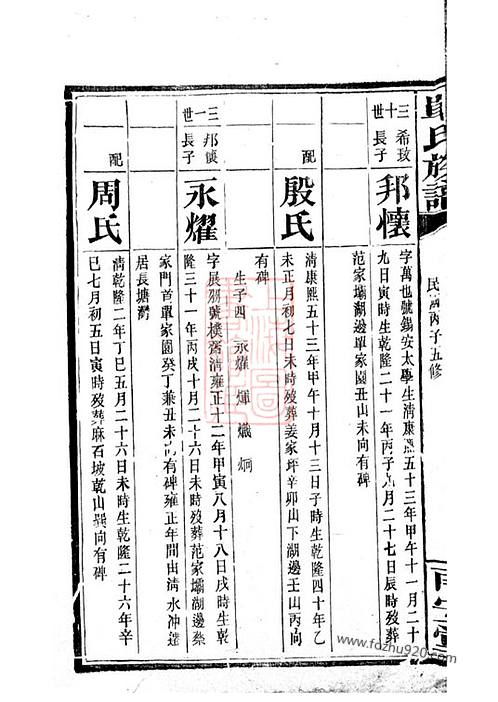 氏族譜
民國丙子五修
三十世
希玫長子
邦懷
字萬也號錫安太學生清康熙五十三年甲午十一月二十
九日寅時生乾隆二十一年丙子九月二十七日辰時歿葬
范家壩湖邊單家園丑山未向有碑
配
殷氏
清康熙五十三年甲午十月十三日子時生乾隆四十年乙
未正月初七日未時歿葬姜家坪辛卯山下湖邊壬山丙向
有碑
生子四 永燿 煇 熾 炯
三一世
邦懷長子
永燿
字展朔號樸齋清雍正十二年甲寅八月十八日戌時生乾
隆三十一年丙戌十月二十六日未時歿葬范家壩湖邊蔡
家門首單家園癸丁兼丑未向有碑雍正年間由清水冲遷
居長塘灣
配
周氏
清乾隆二年丁巳五月二十六日未時生乾隆二十六年辛
巳七月初五日寅時歿葬麻石坡乾山巽向有碑
www.fozhu920.com